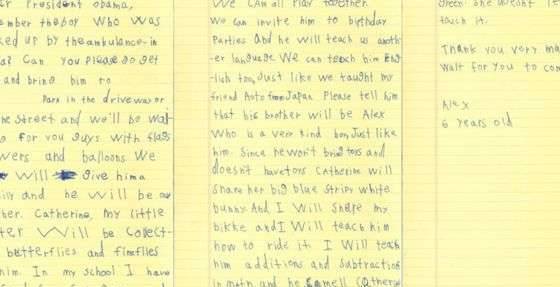 r President Obama,
ember theboy who was
ked up by theambulance in
a? Can you please go get
and bring him to
Park in the driveway or
he street and we'll be wait
g for you guys with flags
wers and balloons We
will give him a
ily and he will be
ther. Catherine, my little
ter will be collect
butterflies and fireflies
him. In my school I have
We CAn all play together
We can invite him to birthday
Parties And he will teach us anoth
er language. We can teach him Eng
lish too, Just like we taught my
friend Aoto from Japan Please tell him
that his brother will be Alex
Who is a very kind boy, Just like
him. Since he won't bring toys and
doesn't have toys Catherine will
share her big blue stripy white
bunny. And I will share my
bikke and I will teach him
how to ride it. I will teach
him additions and subtractions
in math and he smell Catherine
green she doesn't let
touch it.
Thank you very mu
wait for you to com
Alex
6 years old